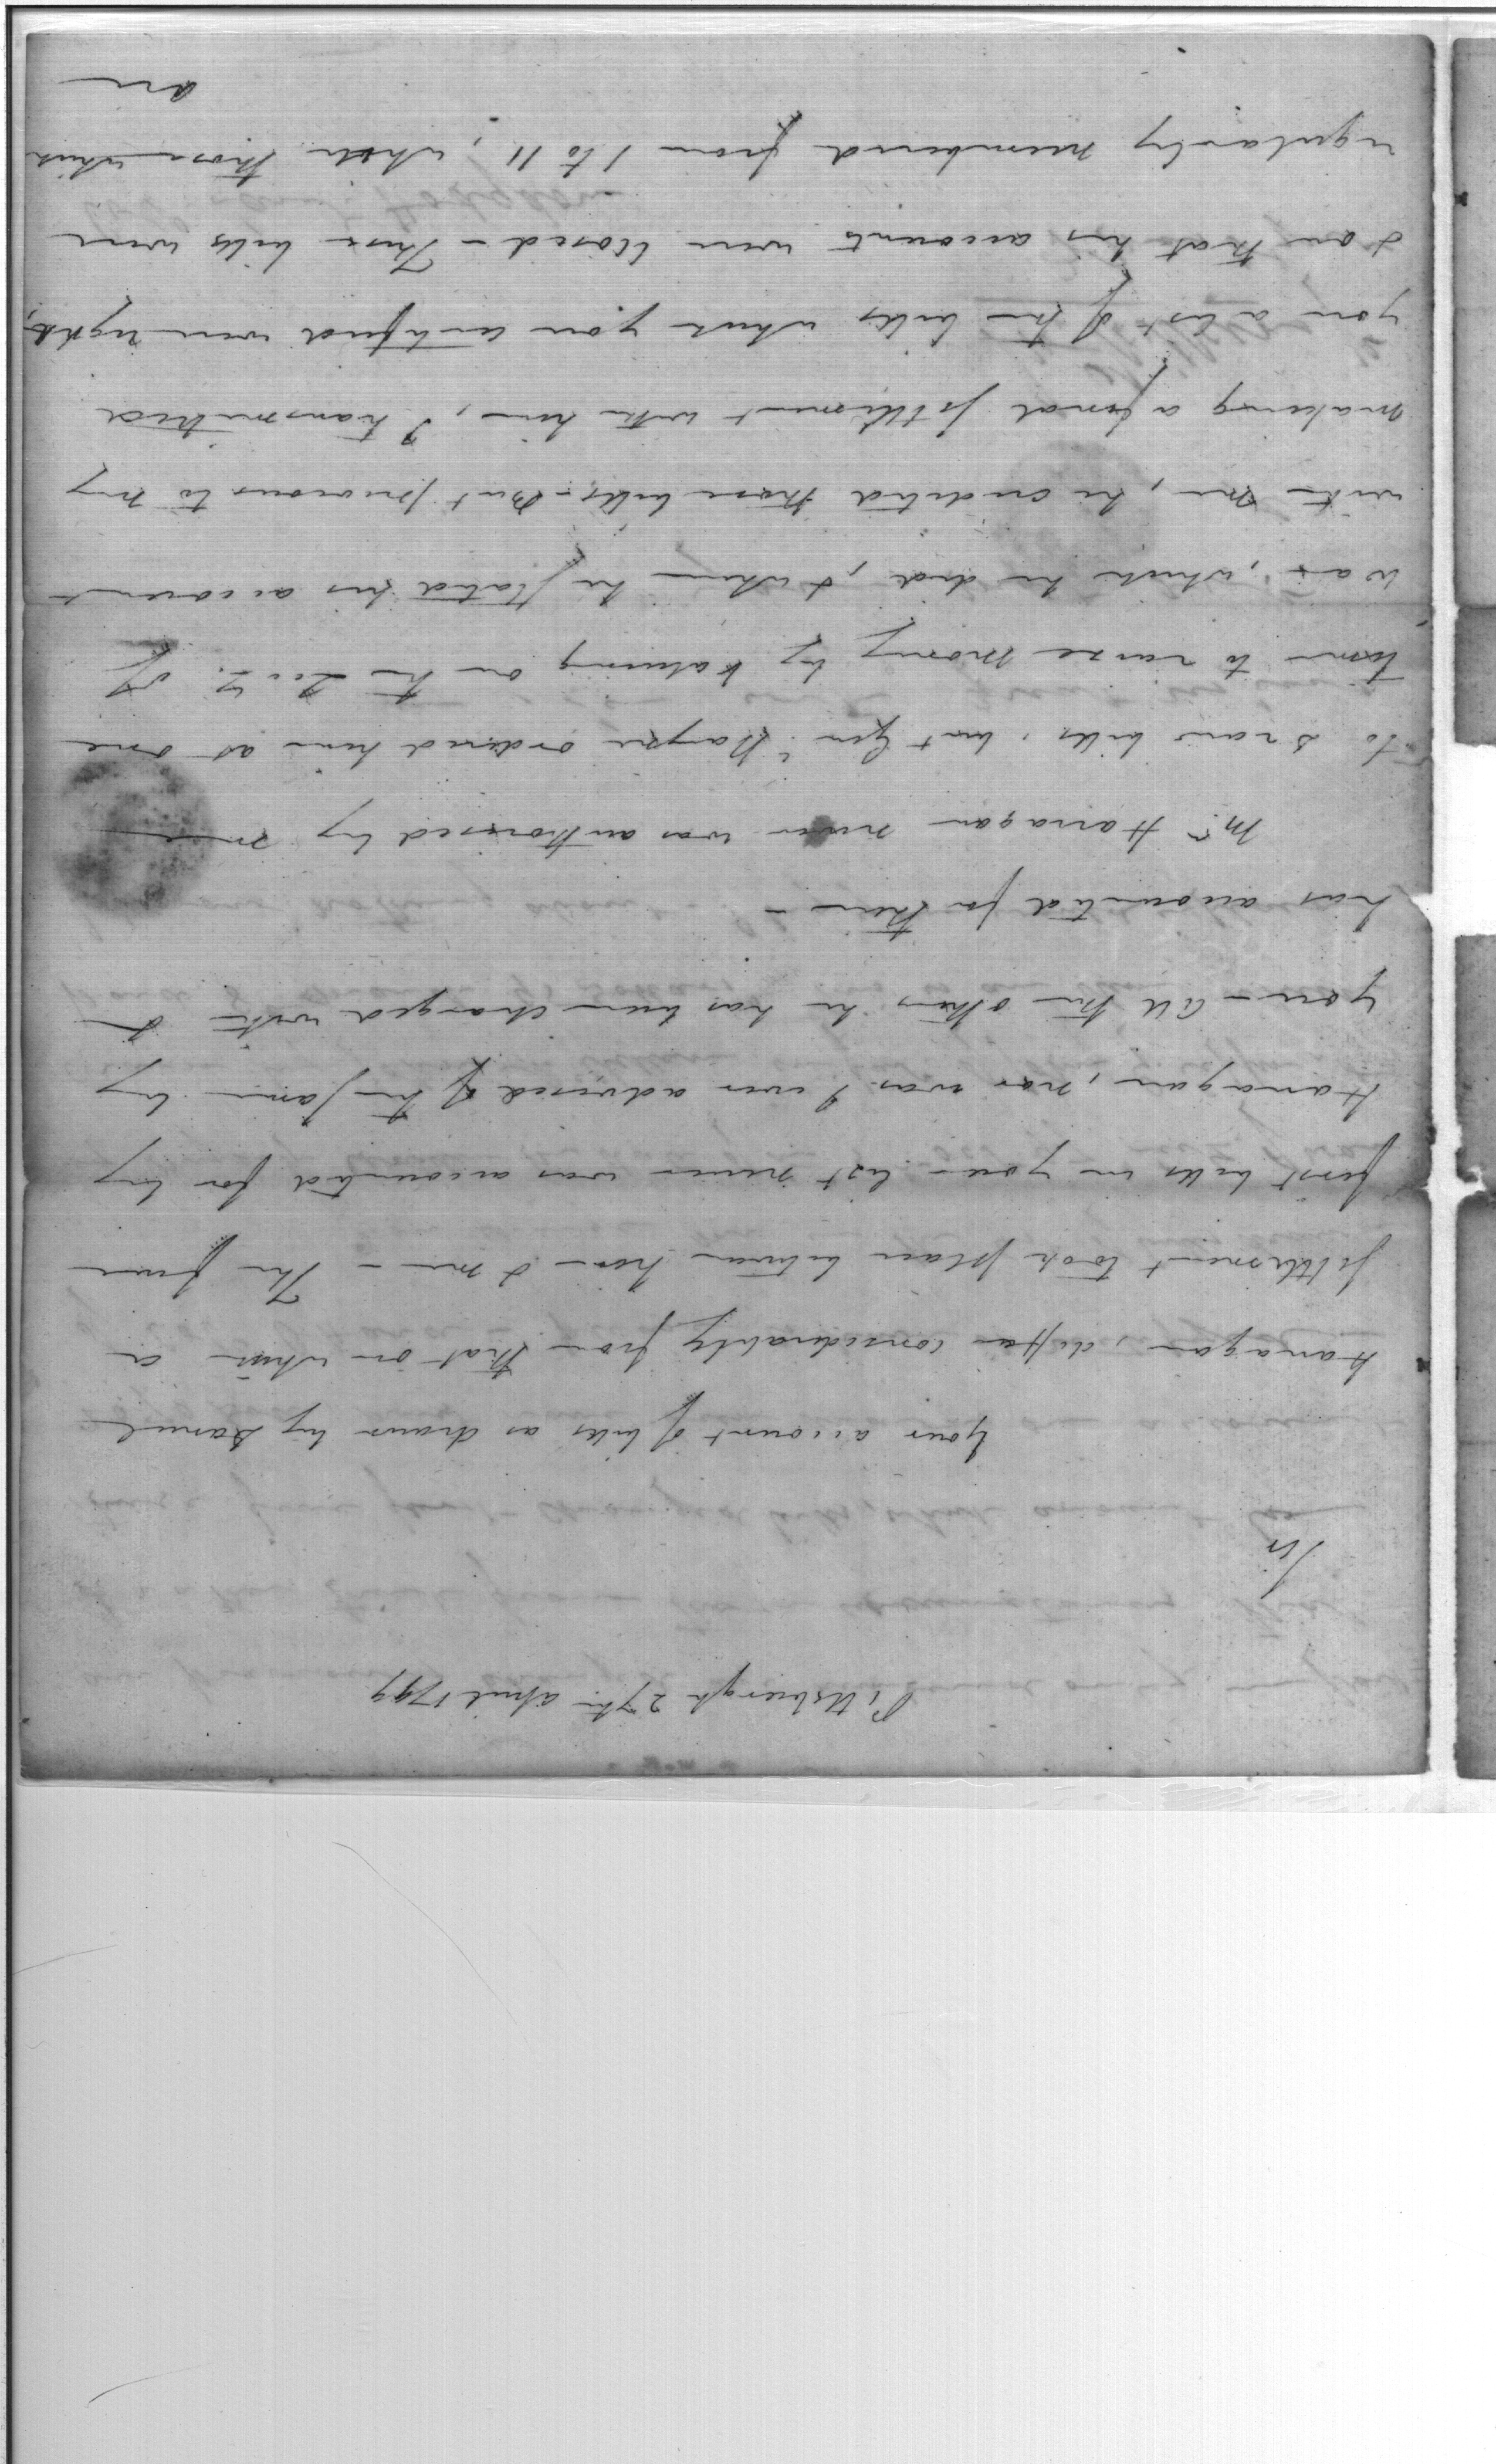 Pittsburgh 27th April 1799
Sir
Your account of bills as drawn by Daniel
Hanagan, differ considerably from that on which a
settlement took place between him & me - The five
first bills in your list never was accounted for by
Hanagan, nor was I ever advised of the same by
you - All the others he has been charged with &
has accounted for them -
Mr Hanagan never was authorised by me
to draw bills, but Genl Wayne ordered him at one
time to raise money by drawing on the Secy of
War, which he did, & when he stated his account
with me, he credited those bills - But previous to my
making a final settlement with him, I transmitted
you a list of the bills which you certified were right,
& on that his accounts were closed - These bills were
regularly numbered from 1 to 11, when those which
are